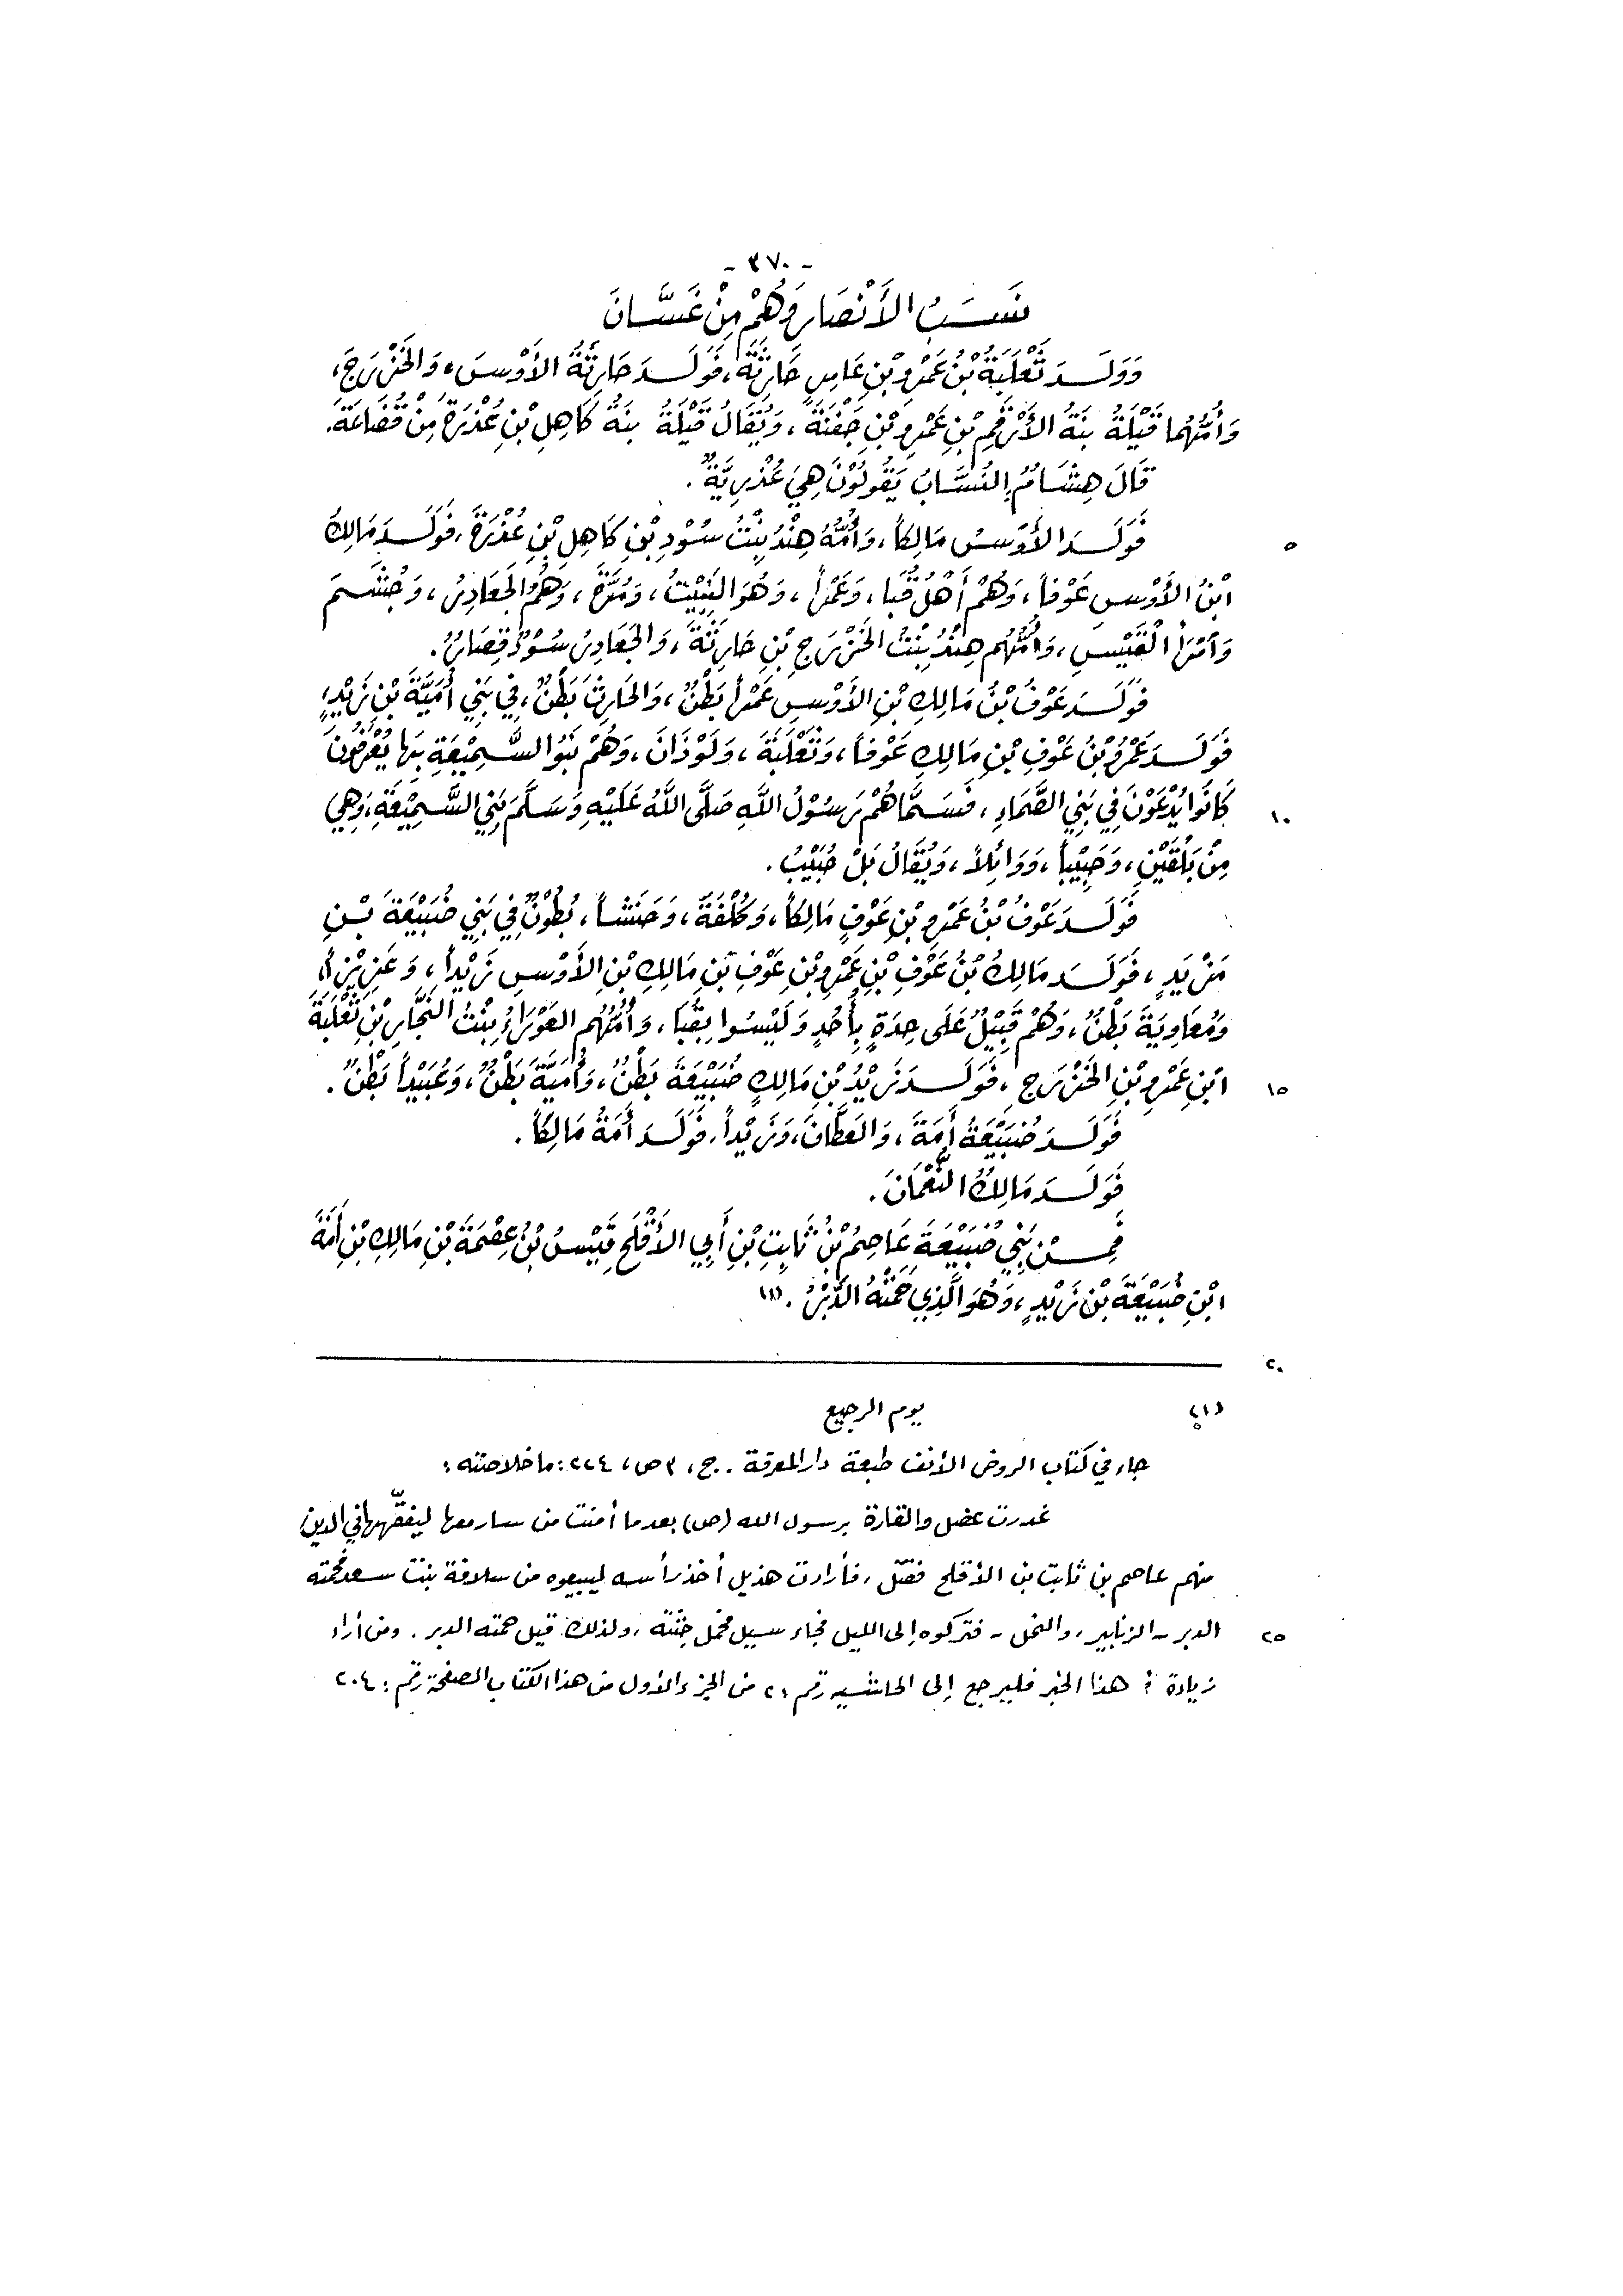 - ٣٧٠ -
نَسَبُ الأَنْصَارِ وَهُمْ مِنْ غَسَّانَ
وَوَلَدَ ثَعْلَبَةُ بْنُ عَمْرِو بْنِ عَامِرٍ حَارِثَةَ، فَوَلَدَ حَارِثَةُ الأَوْسَ، وَالخَزْرَجَ،
وَأُمُّهُمَا قَيْلَةُ بِنَةُ الأَرْقَمِ بْنِ عَمْرِو بْنِ جَفْنَةَ، وَيُقَالُ قَيْلَةُ بِنَةُ كَاهِلِ بْنِ عُذْرَةَ مِنْ قُضَاعَةَ.
قَالَ هِشَامٌ: النُّسَّابُ يَقُولُوْنَ هِيَ عُذْرِيَّةٌ.
٥ فَوَلَدَ الأَوْسُ مَالِكاً، وَأُمُّهُ هِنْدُ بِنْتُ سُوْدِ بْنِ كَاهِلِ بْنِ عُذْرَةَ، فَوَلَدَ مَالِكُ
ابْنُ الأَوْسِ عَوْفاً، وَهُمْ أَهْلُ قُبَا، وَعَمْراً، وَهُوَ النَّبِيْتُ، وَمُرَّةَ، وَهُمُ الجَعَادِرُ، وَجُشَمَ
وَامْرَأَ الْقَيْسِ، وَأُمُّهُم هِنْدُ بِنْتُ الخَزْرَجِ بْنِ حَارِثَةَ، وَالجَعَادِرُ سُوْدٌ قِصَارٌ.
فَوَلَدَ عَوْفُ بْنُ مَالِكِ بْنِ الأَوْسِ عَمْراً بَطْنٌ، وَالحَارِثَ بَطْنٌ، فِي بَنِي أُمَيَّةَ بْنِ زَيْدٍ،
فَوَلَدَ عَمْرُو بْنُ عَوْفِ بْنِ مَالِكٍ عَوْفاً، وَثَعْلَبَةَ، وَلَوْذَانَ، وَهُمْ بَنُو السَّمِيْعَةِ بِهَا يُعْرَفُونَ
١٠ كَانُوا يُدْعَوْنَ فِي بَنِي الصَّمَاءِ، فَسَمَّاهُمْ رَسُوْلُ اللَّهِ صَلَّى اللَّهُ عَلَيْهِ وَسَلَّمَ بَنِي السَّمِيْعَةِ، وَهِيَ
مِنْ بَلْقَيْنِ، وَحَبِيْباً، وَوَائِلاً، وَيُقَالُ بَلْ حُبَيْبٌ.
فَوَلَدَ عَوْفُ بْنُ عَمْرِو بْنِ عَوْفٍ مَالِكاً، وَكُلْفَةَ، وَحَنَشاً، بُطُوْنٌ فِي بَنِي ضُبَيْعَةَ بْنِ
زَيْدٍ، فَوَلَدَ مَالِكُ بْنُ عَوْفِ بْنِ عَمْرِو بْنِ عَوْفِ بْنِ مَالِكِ بْنِ الأَوْسِ زَيْداً، وَعَزِيْزاً،
وَمُعَاوِيَةَ بَطْنٌ، وَهُمْ قَبِيْلٌ عَلَى حِدَةٍ بِأُحُدٍ وَلَيْسُوا بِقُبَا، وَأُمُّهُم العَوْرَاءُ بِنْتُ النَّجَّارِ بْنِ ثَعْلَبَةَ
١٥ ابْنِ عَمْرِو بْنِ الخَزْرَجِ، فَوَلَدَ زَيْدُ بْنُ مَالِكٍ ضُبَيْعَةَ بَطْنٌ، وَأُمَيَّةَ بَطْنٌ، وَعُبَيْداً بَطْنٌ.
فَوَلَدَ ضُبَيْعَةُ أَمَةَ، وَالعَطَّافَ، وَزَيْداً، فَوَلَدَ أَمَةُ مَالِكاً.
فَوَلَدَ مَالِكٌ النُّعْمَانَ.
فَمِنْ بَنِي ضُبَيْعَةَ عَاصِمُ بْنُ ثَابِتِ بْنِ أَبِي الأَقْلَحِ قَيْسُ بْنُ عِصْمَةَ بْنِ مَالِكِ بْنِ أَمَةَ
ابْنِ ضُبَيْعَةَ بْنِ زَيْدٍ، وَهُوَ الَّذِي حَمَتْهُ الدَّبْرُ. (١)
٢٠
(١) يوم الرجيع
جاء في كتاب الروض الأنف طبعة دار المعرفة. ج، ٣ ص، ٢٢٤: ما خلاصته:
غدرت عضل والقارة برسول الله (ص) بعدما أمنت من سار معها ليفقّهها في الدين
منهم عاصم بن ثابت بن الأقلح فقتل، فأرادت هذيل أخذ رأسه ليبيعوه من سلافة بنت سعد فحمته
٢٥ الدبر - الزنابير، والنحل - فتركوه إلى الليل فجاء سيل فحمل جثته، ولذلك قيل حمته الدبر. ومن أراد
زيادة في هذا الخبر فليرجع إلى الحاشية رقم ٢١ من الجزء الأول من هذا الكتاب الصفحة رقم: ٢٠٤